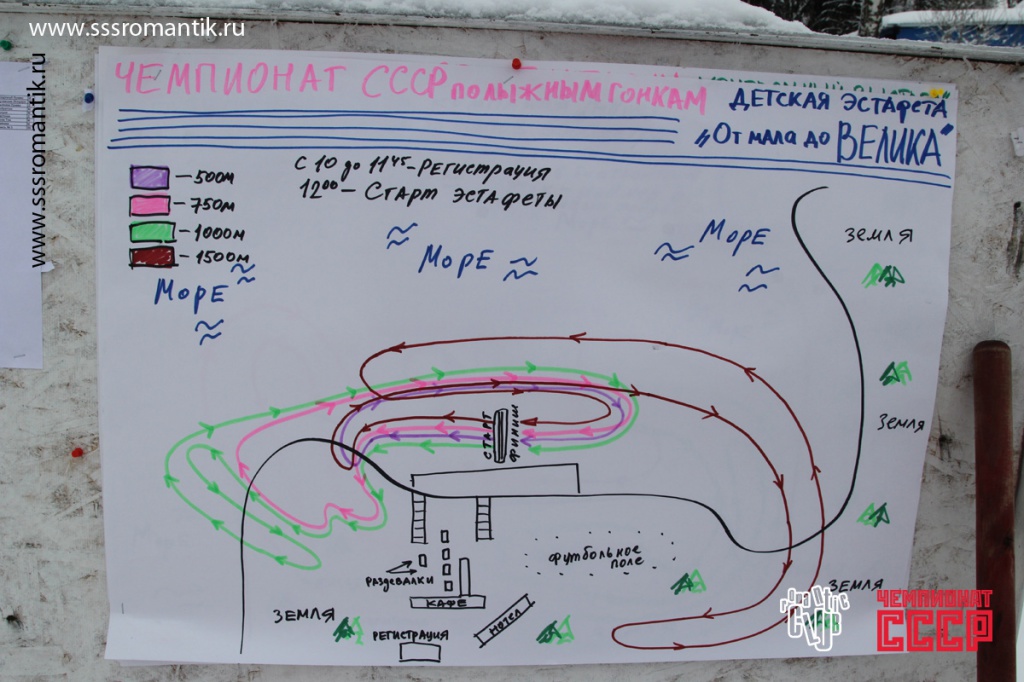 www.sssromantik.ru
www.sssromantik.ru
ЧЕМПИОНАТ СССР по лыжным гонкам
ДЕТСКАЯ ЭСТАФЕТА
„От мала до ВЕЛИКА“
С 10 до 11 45 - РЕГИСТРАЦИЯ
12 00 - СТАРТ ЭСТАФЕТЫ
- 500м
- 750м
- 1000м
- 1500м
МОРЕ
МОРЕ
МОРЕ
ЗЕМЛЯ
ЗЕМЛЯ
СТАРТ
ФИНИШ
ФУТБОЛЬНОЕ
ПОЛЕ
РАЗДЕВАЛКИ
КАФЕ
ЗЕМЛЯ
ЗЕМЛЯ
РЕГИСТРАЦИЯ
ЧЕМПИОНАТ
СССР